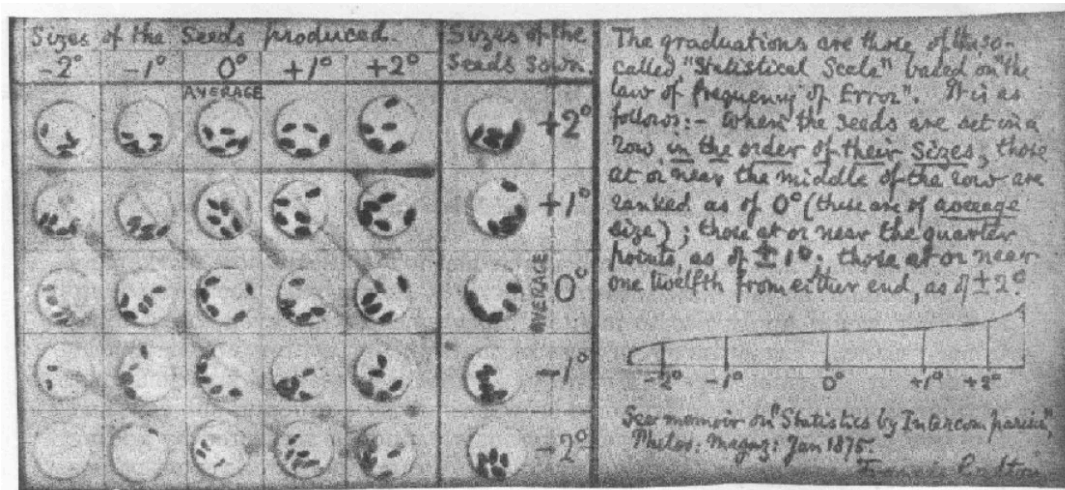 Sizes of the Seeds produced.
-2° -1° 0° +1° +2°
AVERAGE
Sizes of the
Seeds Sown.
+2°
+1°
0°
AVERAGE
-1°
-2°
The graduations are those of the so-
called "Statistical Scale" based on "the
law of frequency of Error". It is as
follows:- Where the seeds are set in a
row, in the order of their Sizes, those
at or near the middle of the row are
ranked as of 0° (these are of average
size); those at or near the quarter
points, as of ±1°. those at or near
one twelfth from either end, as of ±2°.
-2° -1° 0° +1° +2°
See memoir on "Statistics by Intercomparison",
Philos: Magaz: Jan 1875.
Francis Galton